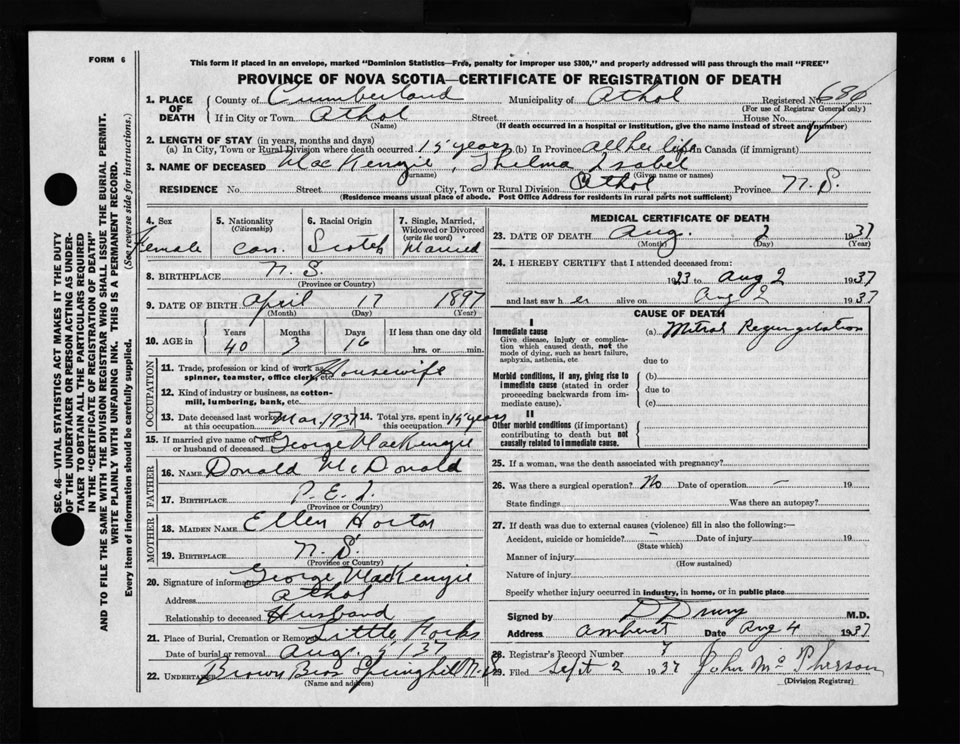 FORM 6
This form if placed in an envelope, marked "Dominion Statistics—Free, penalty for improper use $300," and properly addressed will pass through the mail "FREE"
PROVINCE OF NOVA SCOTIA—CERTIFICATE OF REGISTRATION OF DEATH
SEC. 46—VITAL STATISTICS ACT MAKES IT THE DUTY
OF THE UNDERTAKER OR PERSON ACTING AS UNDER-
TAKER TO OBTAIN ALL THE PARTICULARS REQUIRED
IN THE "CERTIFICATE OF REGISTRATION OF DEATH"
AND TO FILE THE SAME WITH THE DIVISION REGISTRAR WHO SHALL ISSUE THE BURIAL PERMIT.
WRITE PLAINLY WITH UNFADING INK. THIS IS A PERMANENT RECORD.
Every item of information should be carefully supplied. (See reverse side for instructions.)
1. PLACE OF DEATH County of Cumberland Municipality of Athol Registered No.
(For use of Registrar General only)
If in City or Town Athol Street House No.
(Name) (If death occurred in a hospital or institution, give the name instead of street and number)
2. LENGTH OF STAY (in years, months and days)
(a) In City, Town or Rural Division where death occurred 15 years (b) In Province all her life In Canada (if immigrant)
3. NAME OF DECEASED MacKenzie, Thelma Isabel
(Surname) (Given name or names)
RESIDENCE No. Street City, Town or Rural Division Athol Province N.S.
(Residence means usual place of abode. Post Office Address for residents in rural parts not sufficient)
4. Sex Female
5. Nationality (Citizenship) Can.
6. Racial Origin Scotch
7. Single, Married, Widowed or Divorced (write the word) Married
8. BIRTHPLACE N.S.
(Province or Country)
9. DATE OF BIRTH April 17 1897
(Month) (Day) (Year)
10. AGE in Years 40 Months 3 Days 16 If less than one day old hrs. or min.
OCCUPATION
11. Trade, profession or kind of work as spinner, teamster, office clerk, etc. Housewife
12. Kind of industry or business, as cotton-mill, lumbering, bank, etc.
13. Date deceased last worked at this occupation Mar, 1937 14. Total yrs. spent in this occupation 15 years
15. If married give name of wife or husband of deceased George MacKenzie
FATHER
16. NAME Donald McDonald
17. BIRTHPLACE P.E.I.
(Province or Country)
MOTHER
18. MAIDEN NAME Ellen Horton
19. BIRTHPLACE N.S.
(Province or Country)
20. Signature of informant George MacKenzie
Address Athol
Relationship to deceased Husband
21. Place of Burial, Cremation or Removal Little Forks
Date of burial or removal Aug. 5/37
22. UNDERTAKER Brown Bros Springhill N.S.
(Name and address)
MEDICAL CERTIFICATE OF DEATH
23. DATE OF DEATH Aug. 2 1937
(Month) (Day) (Year)
24. I HEREBY CERTIFY that I attended deceased from:
1923 to Aug 2 1937
and last saw h er alive on Aug 2 1937
CAUSE OF DEATH
I
Immediate cause (a) Mitral Regurgitation
Give disease, injury or complication which caused death, not the mode of dying, such as heart failure, asphyxia, asthenia, etc
due to
Morbid conditions, if any, giving rise to immediate cause (stated in order proceeding backwards from immediate cause).
(b)
due to
(c)
II
Other morbid conditions (if important) contributing to death but not causally related to immediate cause.
25. If a woman, was the death associated with pregnancy?
26. Was there a surgical operation? No Date of operation — 19
State findings Was there an autopsy?
27. If death was due to external causes (violence) fill in also the following:—
Accident, suicide or homicide? — Date of injury 19
(State which)
Manner of injury
(How sustained)
Nature of injury
Specify whether injury occurred in industry, in home, or in public place
Signed by D Drury M.D.
Address Amherst Date Aug 4 1937
28. Registrar's Record Number 7
29. Filed Sept 2 1937 John McPherson
(Division Registrar)